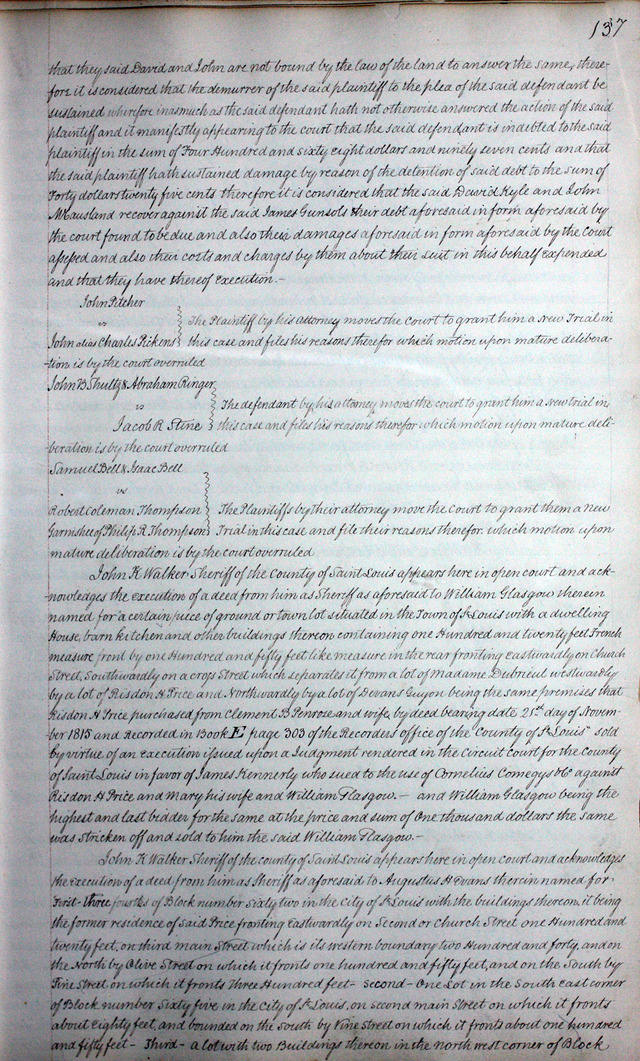 137
that they said David and John are not bound by the law of the land to answer the same, there-
fore it is considered that the demurrer of the said plaintiff to the plea of the said defendant be
sustained wherefore inasmuch as the said defendant hath not otherwise answered the action of the said
plaintiff and it manifestly appearing to the court that the said defendant is indebted to the said
plaintiff in the sum of Four Hundred and sixty eight dollars and ninety seven cents and that
the said plaintiff hath sustained damage by reason of the detention of said debt to the sum of
Forty dollars twenty five cents therefore it is considered that the said David Kyle and John
Mausland recover against the said James Gunsols their debt aforesaid in form aforesaid by
the court found to be due and also their damages aforesaid in form aforesaid by the Court
assessed and also their costs and charges by them about their suit in this behalf expended
and that they have thereof execution.-
John Pitcher
vs The Plaintiff by his attorney moves the Court to grant him a New Trial in
John alias Charles Pickens this case and files his reasons therefor which motion upon mature delibera-
-tion is by the court overruled
John B Shultz & Abraham Ringer
vs The defendant by his attorney moves the court to grant him a new trial in
Jacob R. Stine this case and files his reasons therefor which motion upon mature deli-
beration is by the court overruled
Samuel Bell & Isaac Bell
vs
Robert Coleman Thompson The Plaintiffs by their attorney move the Court to grant them a new
Garnishee of Philip R Thompson Trial in this case and file their reasons therefor which motion upon
mature deliberation is by the court overruled
John K Walker Sheriff of the County of Saint Louis appears here in open court and ack-
-nowledges the execution of a deed from him as Sheriff as aforesaid to William Glasgow therein
named for a certain piece of ground or town lot situated in the Town of St Louis with a dwelling
House, barn kitchen and other buildings thereon containing one Hundred and twenty feet French
measure front by one Hundred and fifty feet like measure in the rear fronting Eastwardly on Church
Street, Southwardly on a cross Street which separates it from a lot of Madame Dubreuil westwardly
by a lot of Risdon H Price and Northwardly by a lot of Devans Guyon being the same premises that
Risdon H Price purchased from Clement B Penrose and wife, by deed bearing date 21st day of Novem-
ber 1815 and Recorded in Book E page 303 of the Recorders office of the County of St Louis sold
by virtue of an execution issued upon a Judgment rendered in the Circuit court for the County
of Saint Louis in favor of James Kennerly who sued to the use of Cornelius Comegys & Co against
Risdon H Price and Mary his wife and William Glasgow.- and William Glasgow being the
highest and last bidder for the same at the price and sum of One thousand dollars the same
was stricken off and sold to him the said William Glasgow.-
John K Walker Sheriff of the county of Saint Louis appears here in open court and acknowledges
the execution of a deed from him as Sheriff as aforesaid to Augustus H Evans therein named for-
First- three fourths of Block number Sixty two in the City of St Louis with the buildings thereon, it being
the former residence of said Price fronting Eastwardly on Second or Church Street one Hundred and
twenty feet, on third main Street which is its western boundary two Hundred and forty, and on
the North by Olive Street on which it fronts one hundred and fifty feet, and on the South by
Pine Street on which it fronts Three Hundred feet- Second- One Lot in the South east corner
of Block number Sixty five in the City of St Louis, on second main Street on which it fronts
about eighty feet, and bounded on the South by Vine Street on which it fronts about one hundred
and fifty feet- Third- a lot with two Buildings thereon in the north west corner of Block